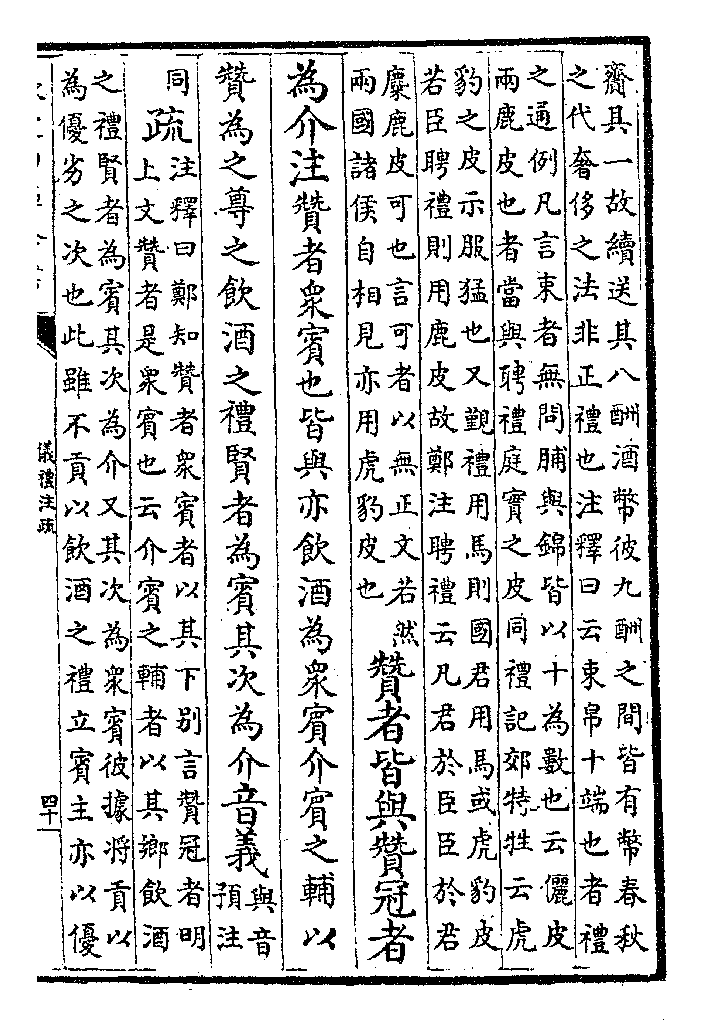 齎其一故續送其八酬酒幣彼九酬之間皆有幣春秋
之代奢侈之法非正禮也注釋曰云束帛十端也者禮
之通例凡言束者無問脯與錦皆以十為數也云儷皮
兩鹿皮也者當與聘禮庭實之皮同禮記郊特牲云虎
豹之皮示服猛也又覲禮用馬則國君用馬或虎豹皮
若臣聘禮則用鹿皮故鄭注聘禮云凡君於臣臣於君
麋鹿皮可也言可者以無正文若然
兩國諸侯自相見亦用虎豹皮也
贊者皆與贊冠者
為介注贊者眾賓也皆與亦飲酒為眾賓介賓之輔以
贊為之尊之飲酒之禮賢者為賓其次為介音義
與音
預注
同
疏
注釋曰鄭知贊者眾賓者以其下别言贊冠者明
上文贊者是眾賓也云介賓之輔者以其鄉飲酒
之禮賢者為賓其次為介又其次為眾賓彼據將貢以
為優劣之次也此雖不貢以飲酒之禮立賓主亦以優
儀禮注疏
四十一